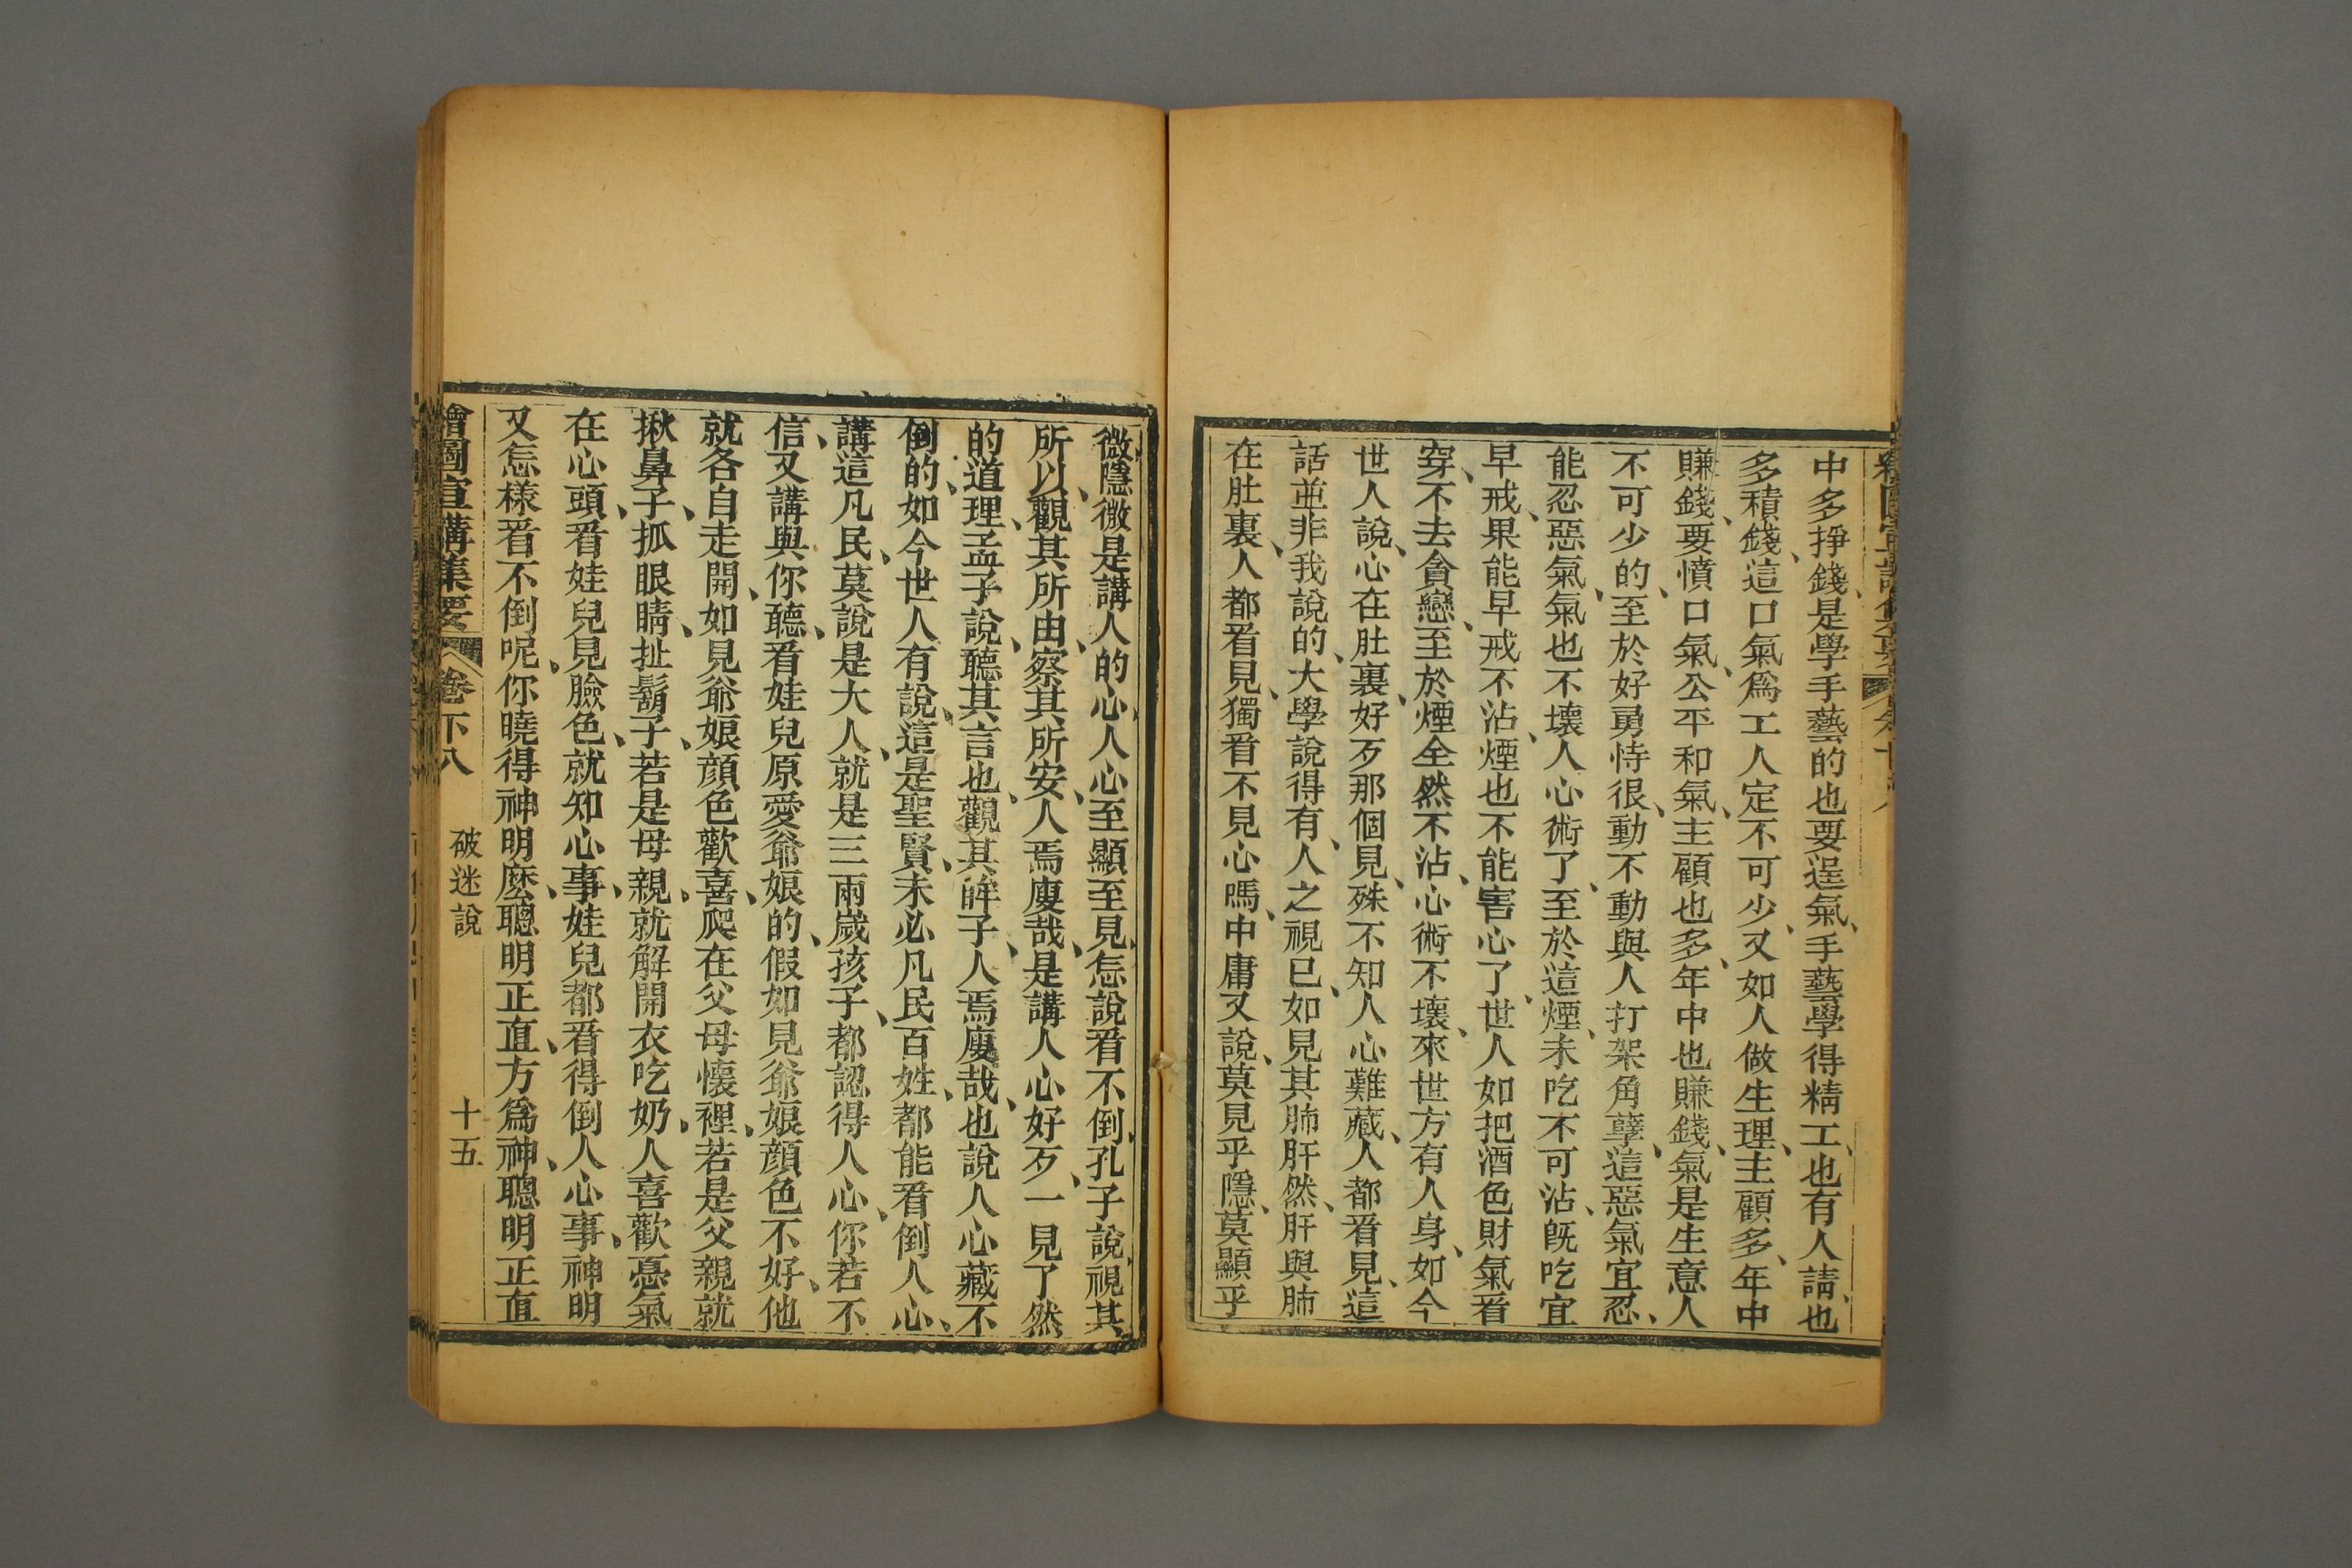 中多掙錢、是學手藝的也要逞氣、手藝學得精工、也有人請、也
多積錢、這口氣爲工人定不可少、又如人做生理、主顧多、年中
賺錢、要憤口氣、公平和氣、主顧也多、年中也賺錢、氣是生意人
不可少的、至於好勇恃很、動不動與人打架角孽、這惡氣宜忍、
能忍惡氣、氣也不壞人心術了、至於這煙、未吃不可沾、既吃宜
早戒、果能早戒不沾、煙也不能害心了、世人如把酒色財氣看
穿、不去貪戀、至於煙全然不沾、心術不壞、來世方有人身、如今
世人說、心在肚裏、好歹那個見、殊不知人心難藏、人都看見、這
話並非我說的、大學說得有、人之視已、如見其肺肝然、肝與肺
在肚裏、人都看見、獨看不見心嗎、中庸又說、莫見乎隱、莫顯乎
微、隱微是講人的心、人心至顯至見、怎說看不倒、孔子說、視其
所以、觀其所由、察其所安、人焉廋哉、是講人心好歹、一見了然
的道理、孟子說、聽其言也、觀其眸子、人焉廋哉、也說人心藏不
倒的、如今世人有說、這是聖賢、未必凡民百姓、都能看倒人心、
講這凡民、莫說是大人、就是三兩歲孩子、都認得人心、你若不
信、又講與你聽、看娃兒原愛爺娘的、假如見爺娘顏色不好、他
就各自走開、如見爺娘顏色歡喜、爬在父母懷裡、若是父親、就
揪鼻子、抓眼睛、扯鬍子、若是母親、就解開衣吃奶、人喜歡惡氣
在心頭、看娃兒見臉色、就知心事、娃兒都看得倒人心事、神明
又怎樣看不倒呢、你曉得神明麽、聰明正直、方爲神、聰明正直
繪圖宣講集要 卷下八 破迷說 十五